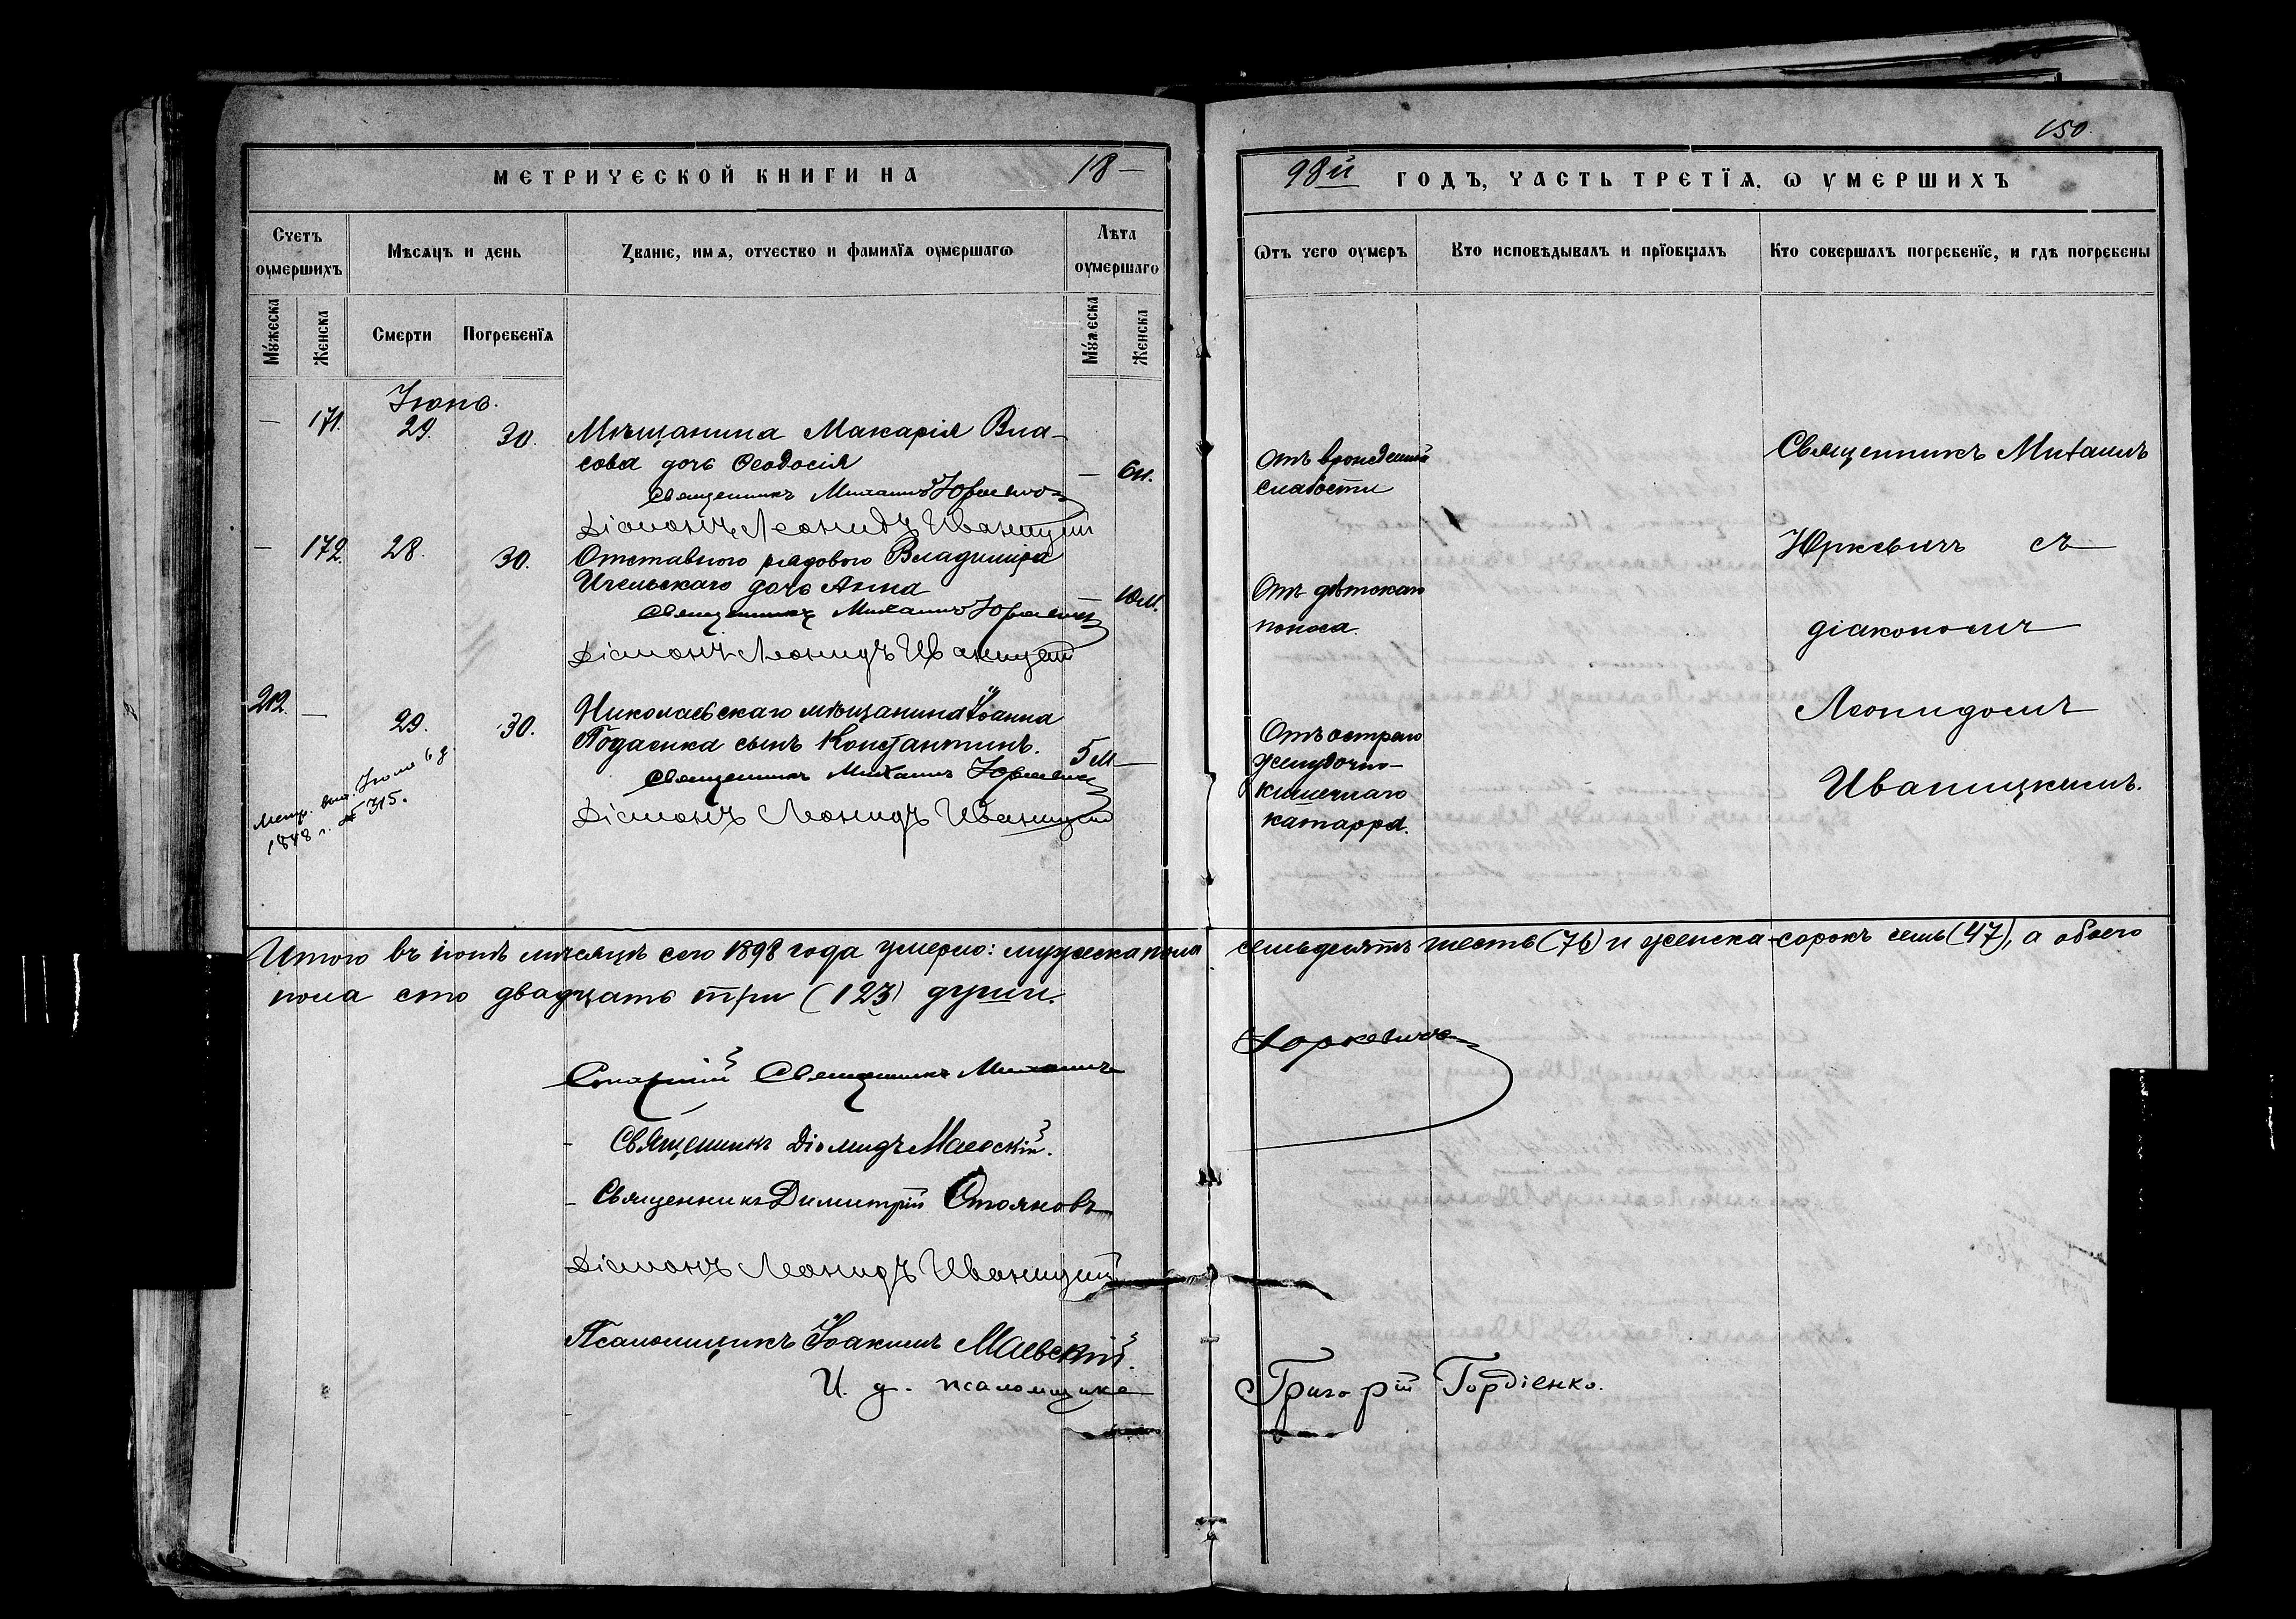 150.
МЕТРИЧЕСКОЙ КНИГИ НА 18—
98й ГОДЪ, ЧАСТЬ ТРЕТЇѦ. Ѡ УМЕРШИХЪ
Счетъ оумершихъ
Мѣсѧцъ и день
Званїе, имѧ, отчество и фамилїѧ оумершагѡ
Лѣта оумершаго
Ѿтъ чего оумеръ
Кто исповѣдывалъ и прїобщалъ
Кто совершалъ погребенїе, и гдѣ погребены
Мужеска
Женска
Смерти
Погребенїѧ
Мужеска
Женска
Іюнь.
— 171. 29. 30. Мѣщанина Макарія Вла-
сова дочь Ѳеодосія — 6м.
Священникъ Михаилъ Юркевичъ
Діаконъ Леонидъ Иваницкій
— 172. 28. 30. Отставного рядового Владиміра
дочь Анна — 10м.
Священникъ Михаилъ Юркевичъ
Діаконъ Леонидъ Иваницкій
212. — 29. 30. Николаевскаго мѣщанина Іоанна
сынъ Константинъ. 5м —
Священникъ Михаилъ Юркевичъ
Діаконъ Леонидъ Иваницкій
Метр. вып. Іюля 6 д.
№ 315.
Отъ врожденной
слабости
Отъ дѣтскаго
поноса.
Отъ остраго
желудочно-
кишечнаго
катарра.
Священникъ Михаилъ
Юркевичъ съ
діакономъ
Леонидомъ
Иваницкимъ.
Итого въ іюнѣ мѣсяцѣ сего 1898 года умерло: мужеска пола семьдесятъ шесть (76) и женска-сорокъ семь (47), а обоего
пола сто двадцать три (123) души.
Старшій Священникъ Михаилъ Юркевичъ
Священникъ Діомидъ Маевскій.
Священникъ Димитрій Стояновъ
Діаконъ Леонидъ Иваницкій
Псаломщикъ Іоакимъ Маевскій.
И. д. псаломщика Григорій Гордіенко.